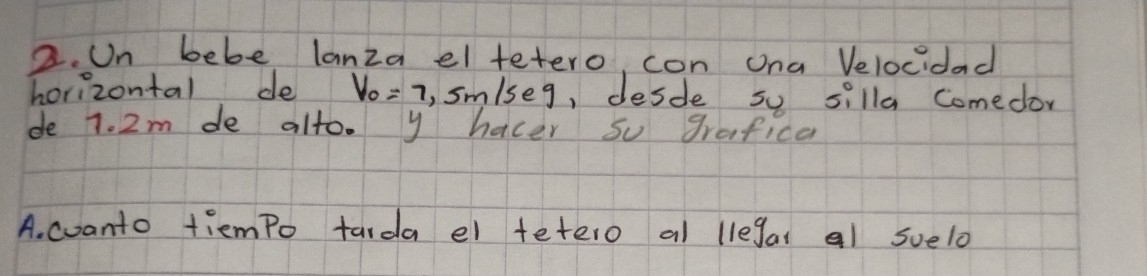 2. Un bebe lanza el tetero, con una Velocidad
horizontal de Vo = 1,5m/seg, desde su silla comedor
de 1.2m de alto. y hacer su grafica
A. cuanto tiempo tarda el tetero al llegar al suelo